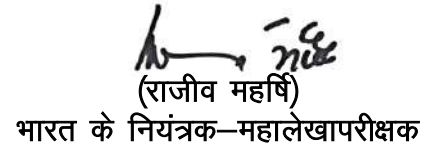 (राजीव महर्षि)
भारत के नियंत्रक–महालेखापरीक्षक